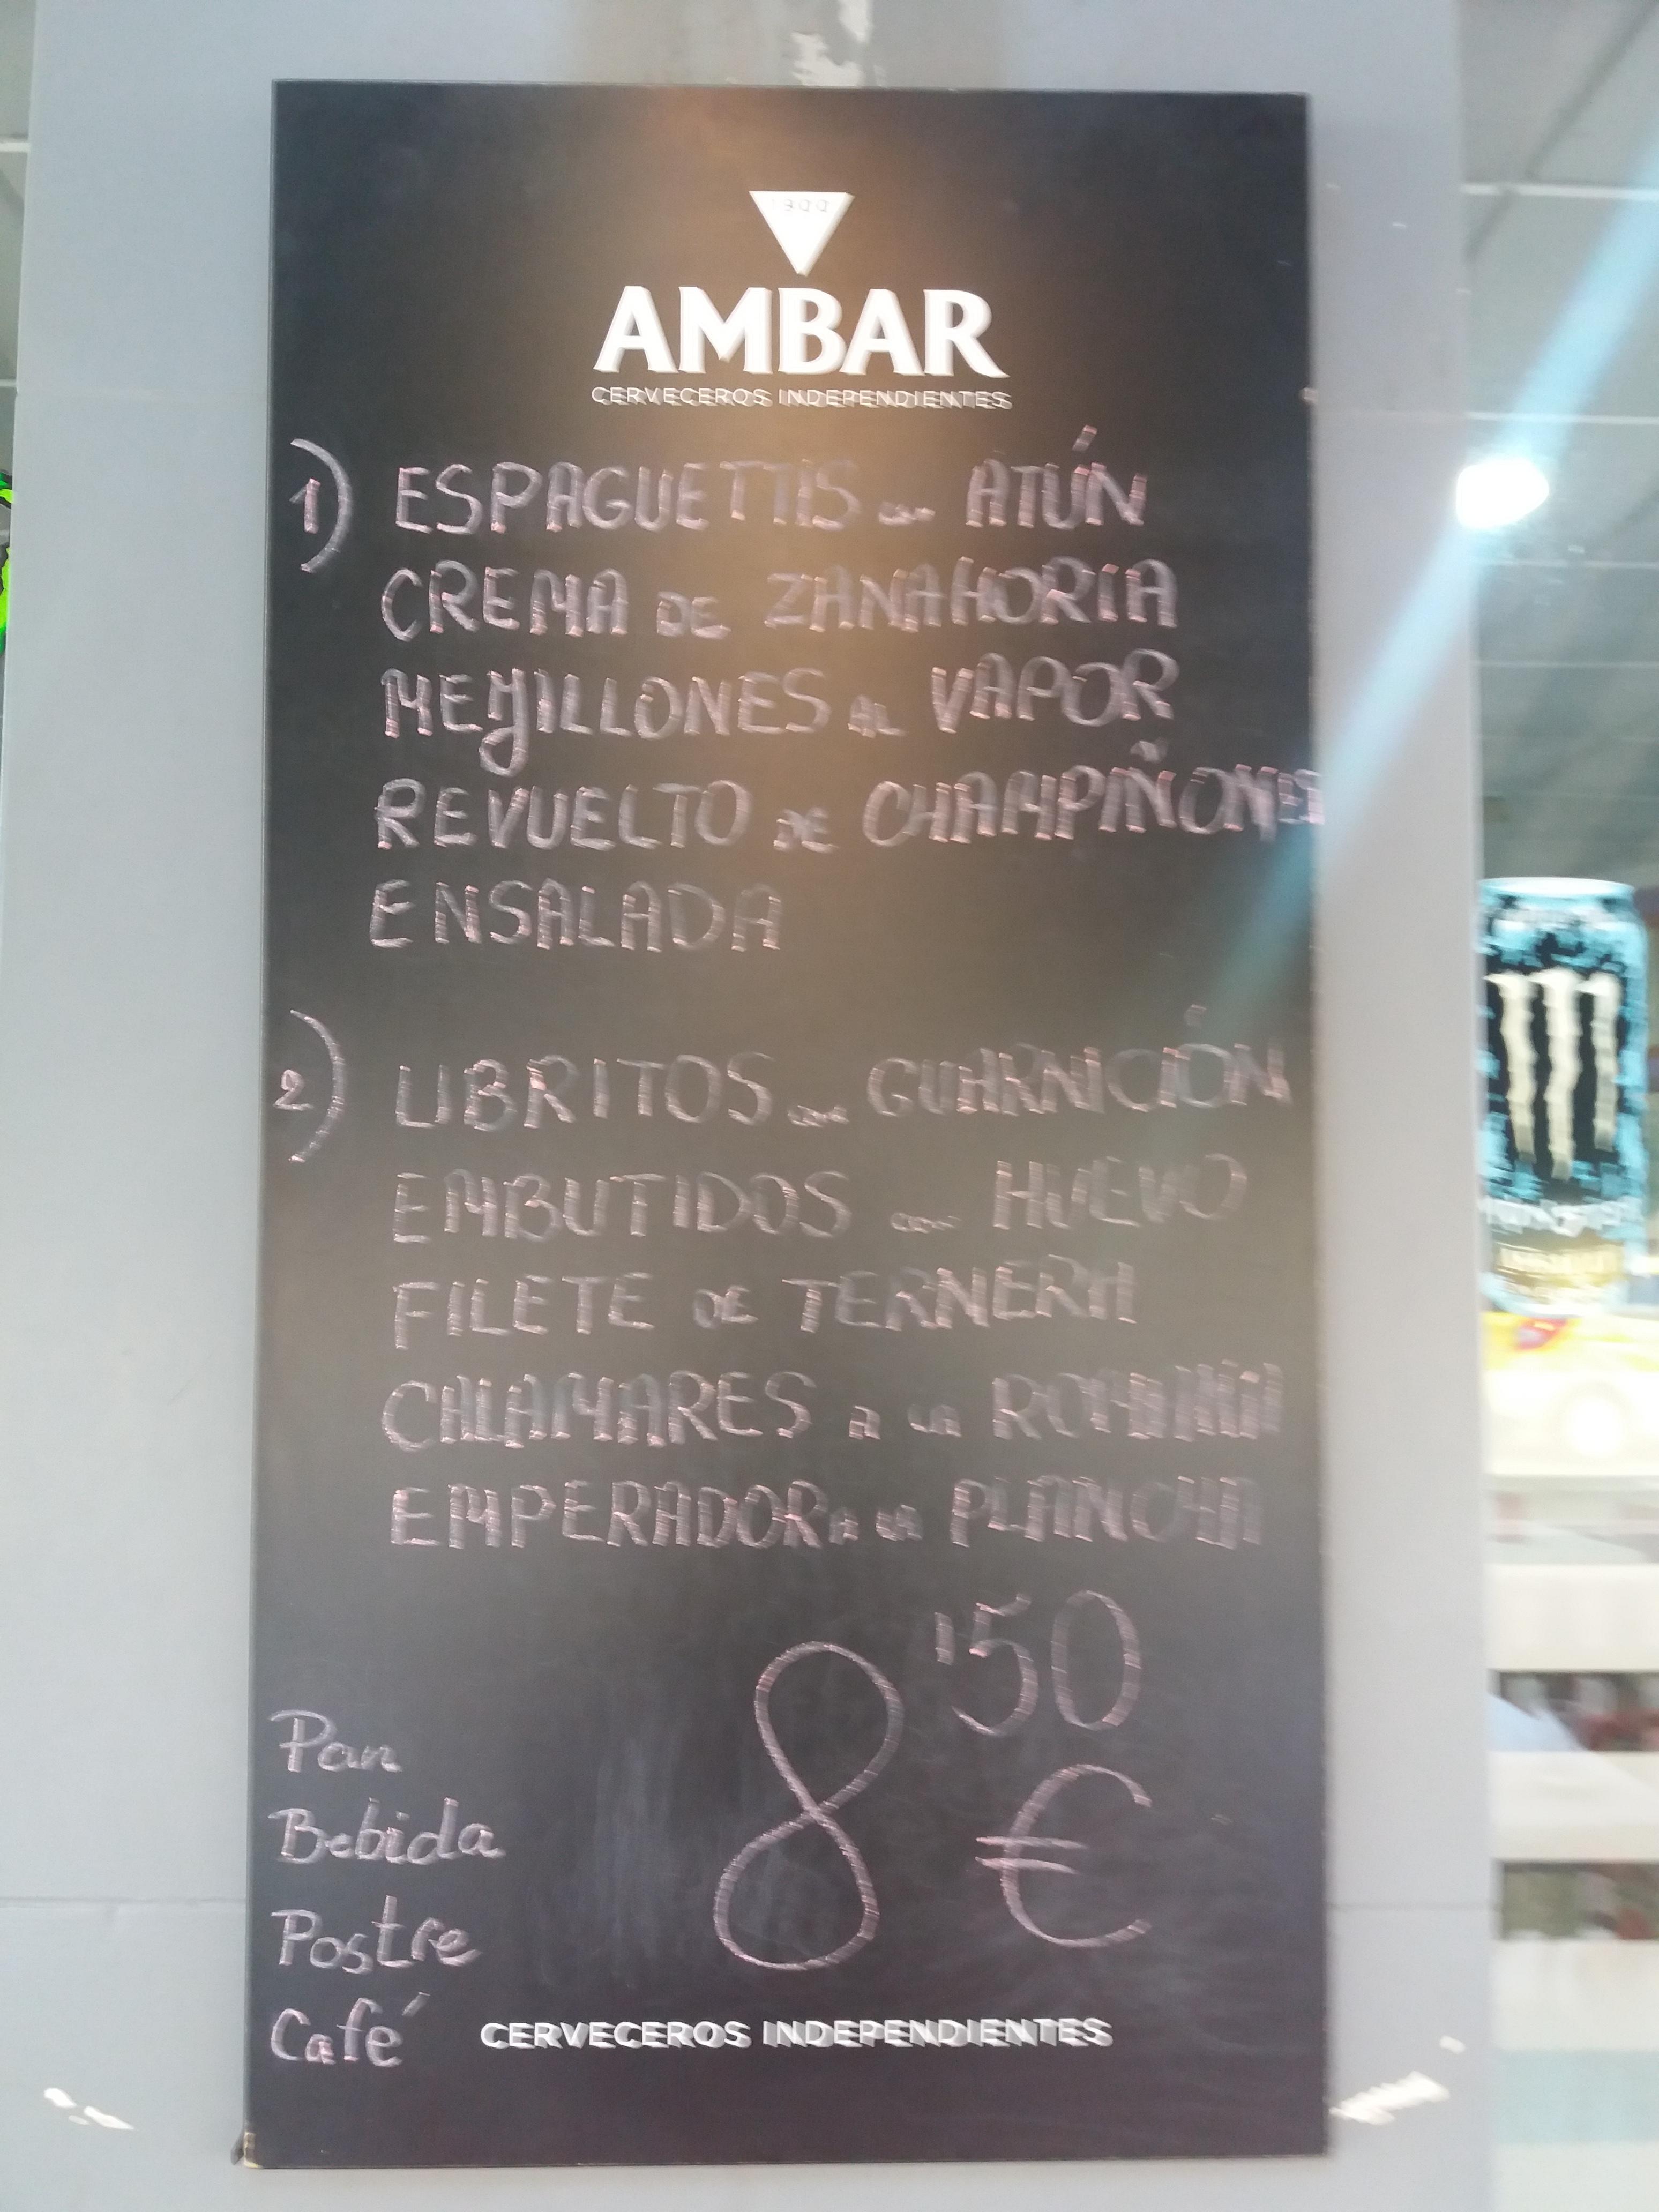 1900
AMBAR
CERVECEROS INDEPENDIENTES
1) ESPAGUETTIS con ATÚN
CREMA DE ZANAHORIA
MEJILLONES AL VAPOR
REVUELTO DE CHAMPIÑONES
ENSALADA
2) LIBRITOS con GUARNICIÓN
EMBUTIDOS con HUEVO
FILETE DE TERNERA
CALAMARES A LA ROMANA
EMPERADOR A LA PLANCHA
8'50
€
Pan
Bebida
Postre
Café
CERVECEROS INDEPENDIENTES